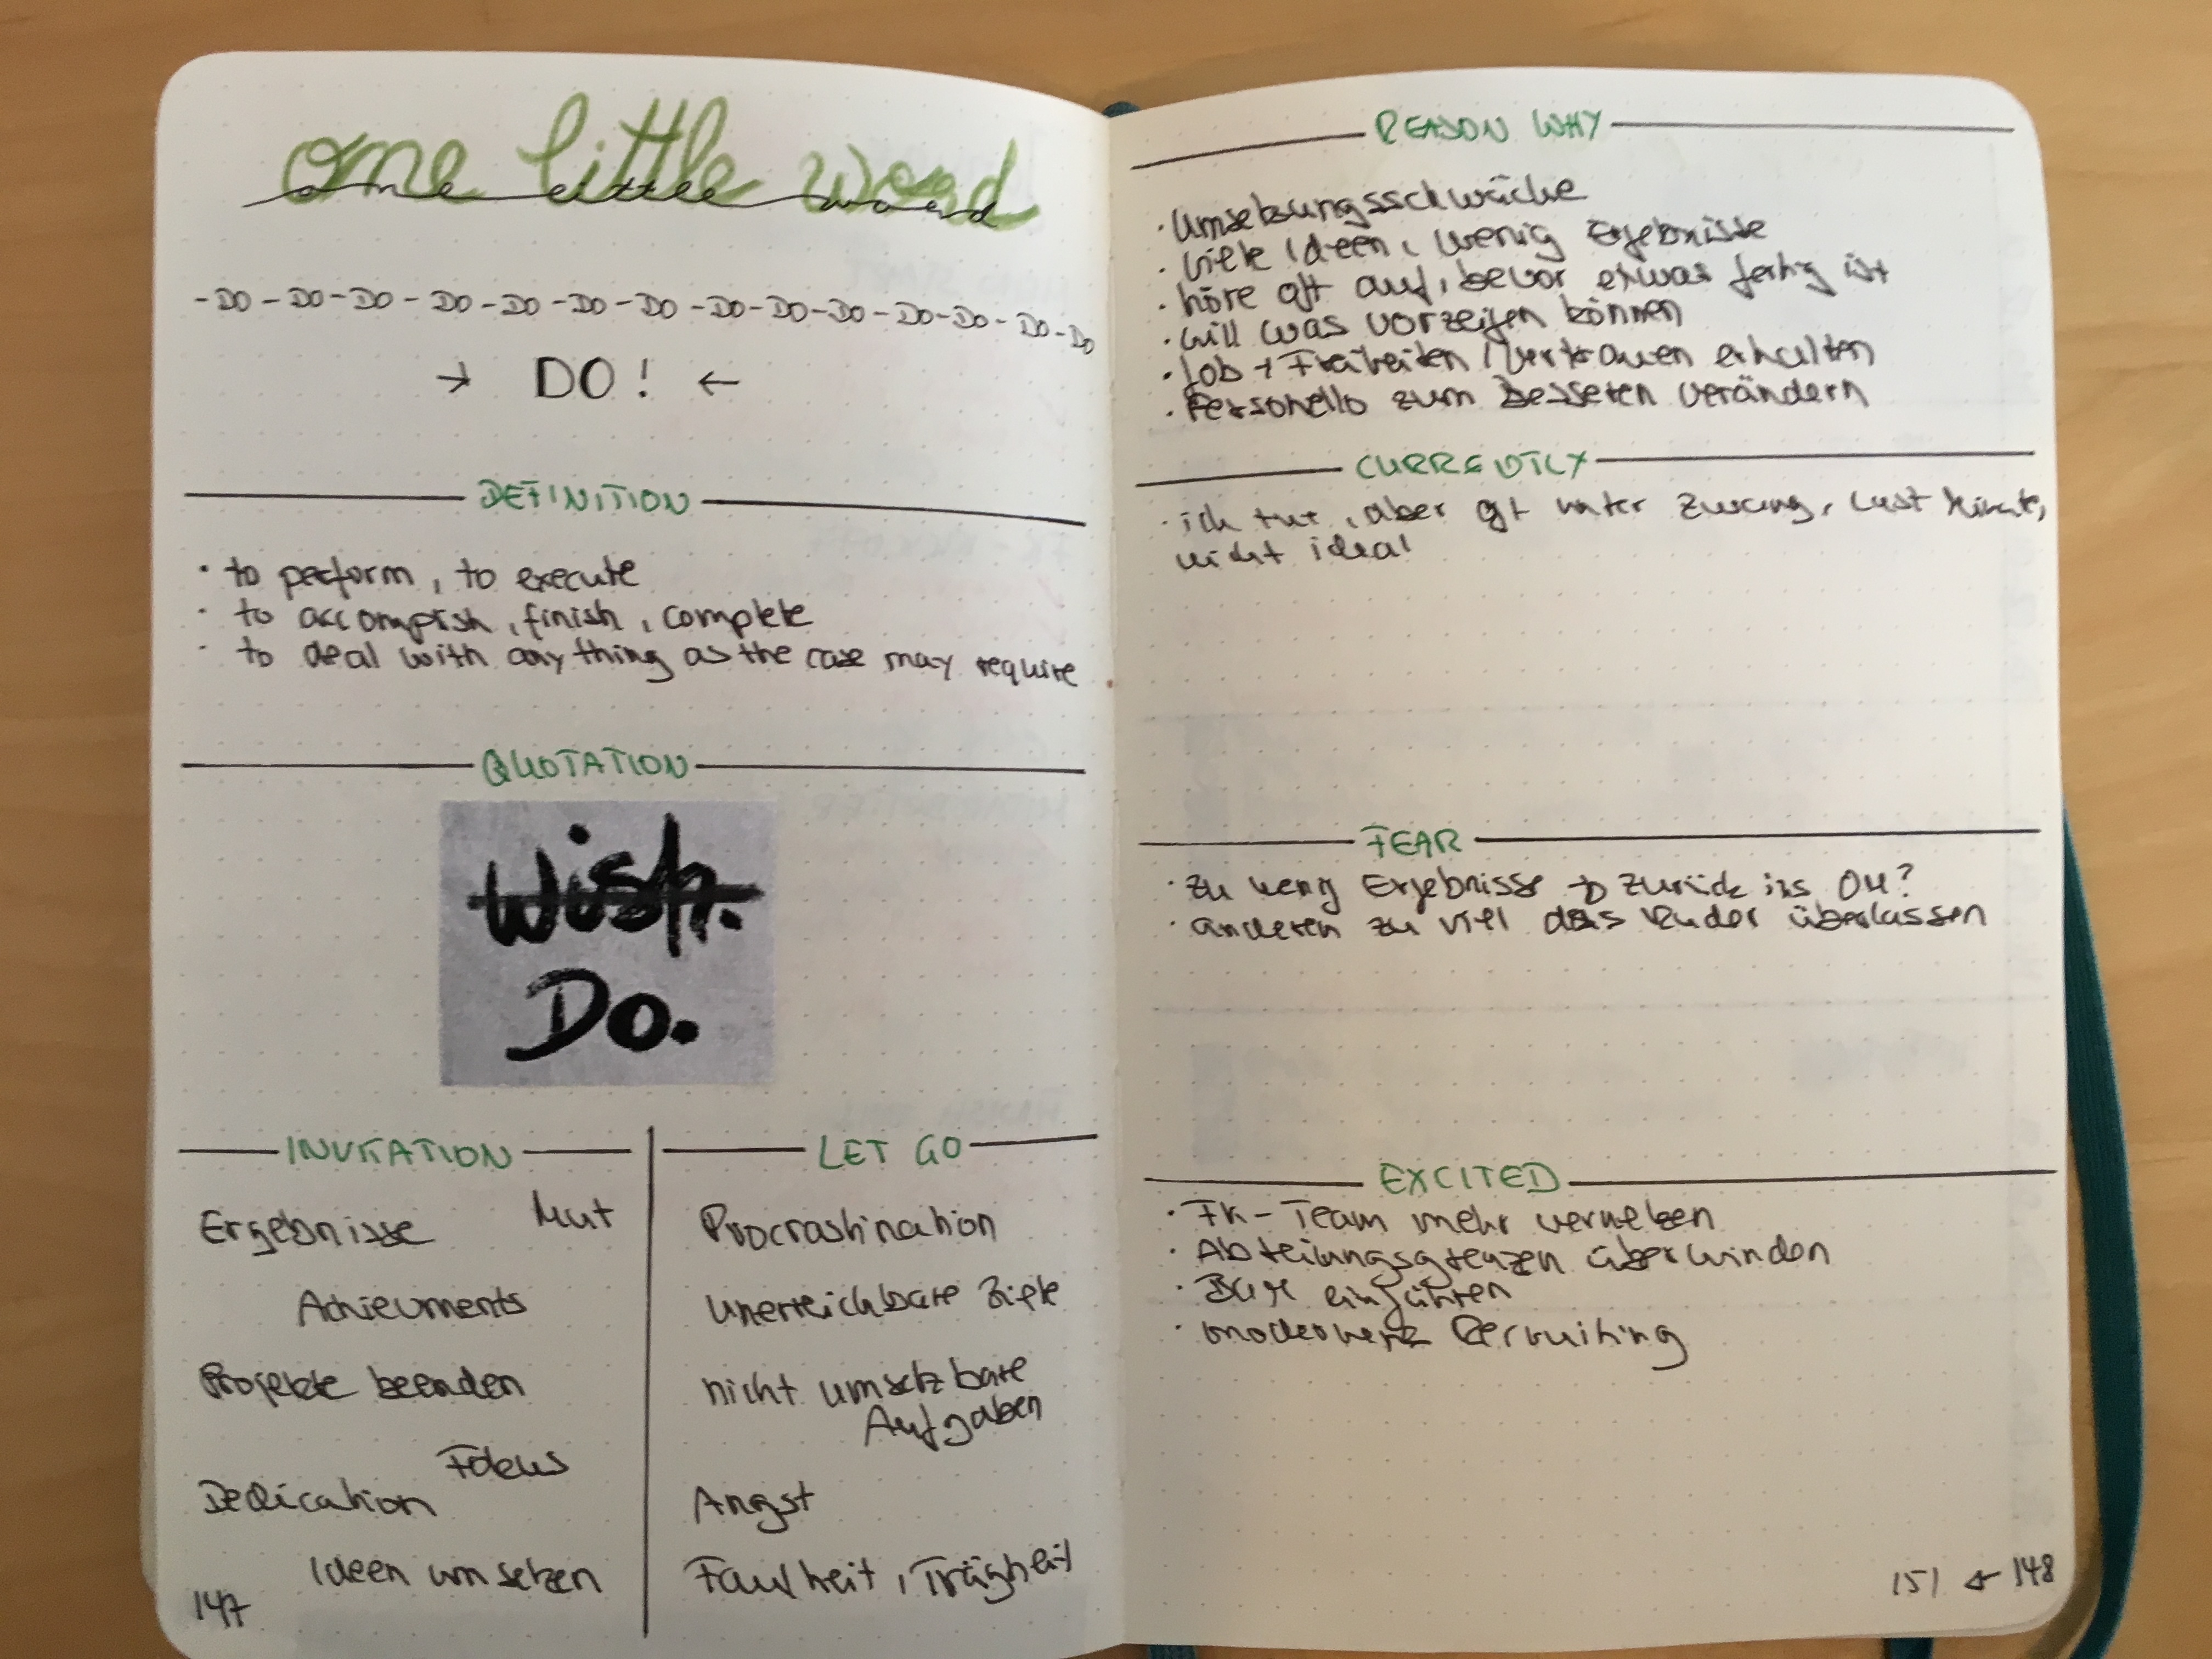 one little word
one little word
-DO-DO-DO-DO-DO-DO-DO-DO-DO-DO-DO-DO-DO-DO
→ DO! ←
DEFINITION
· to perform, to execute
· to accomplish, finish, complete
· to deal with anything as the case may require
QUOTATION
Wish.
Do.
INVITATION
Ergebnisse Mut
Achievments
Projekte beenden
Fokus
Dedication
Ideen umsetzen
147
LET GO
Procrastination
unerreichbare Ziele
nicht umsetzbare
Aufgaben
Angst
Faulheit, Trägheit
REASON WHY
· Umsetzungsschwäche
· viele Ideen, wenig Ergebnisse
· höre oft auf, bevor etwas fertig ist
· will was vorzeigen können
· Job + Freiheiten / Vertrauen erhalten
· Personello zum Besseren verändern
CURRENTLY
· ich tue, aber oft unter Zwang, Last Minute,
nicht ideal
FEAR
· zu wenig Ergebnisse → zurück ins OM?
· anderen zu viel das Ruder überlassen
EXCITED
· FK-Team mehr vernetzen
· Abteilungsgrenzen überwinden
· einführen
· moderneres Recruiting
151 ← 148